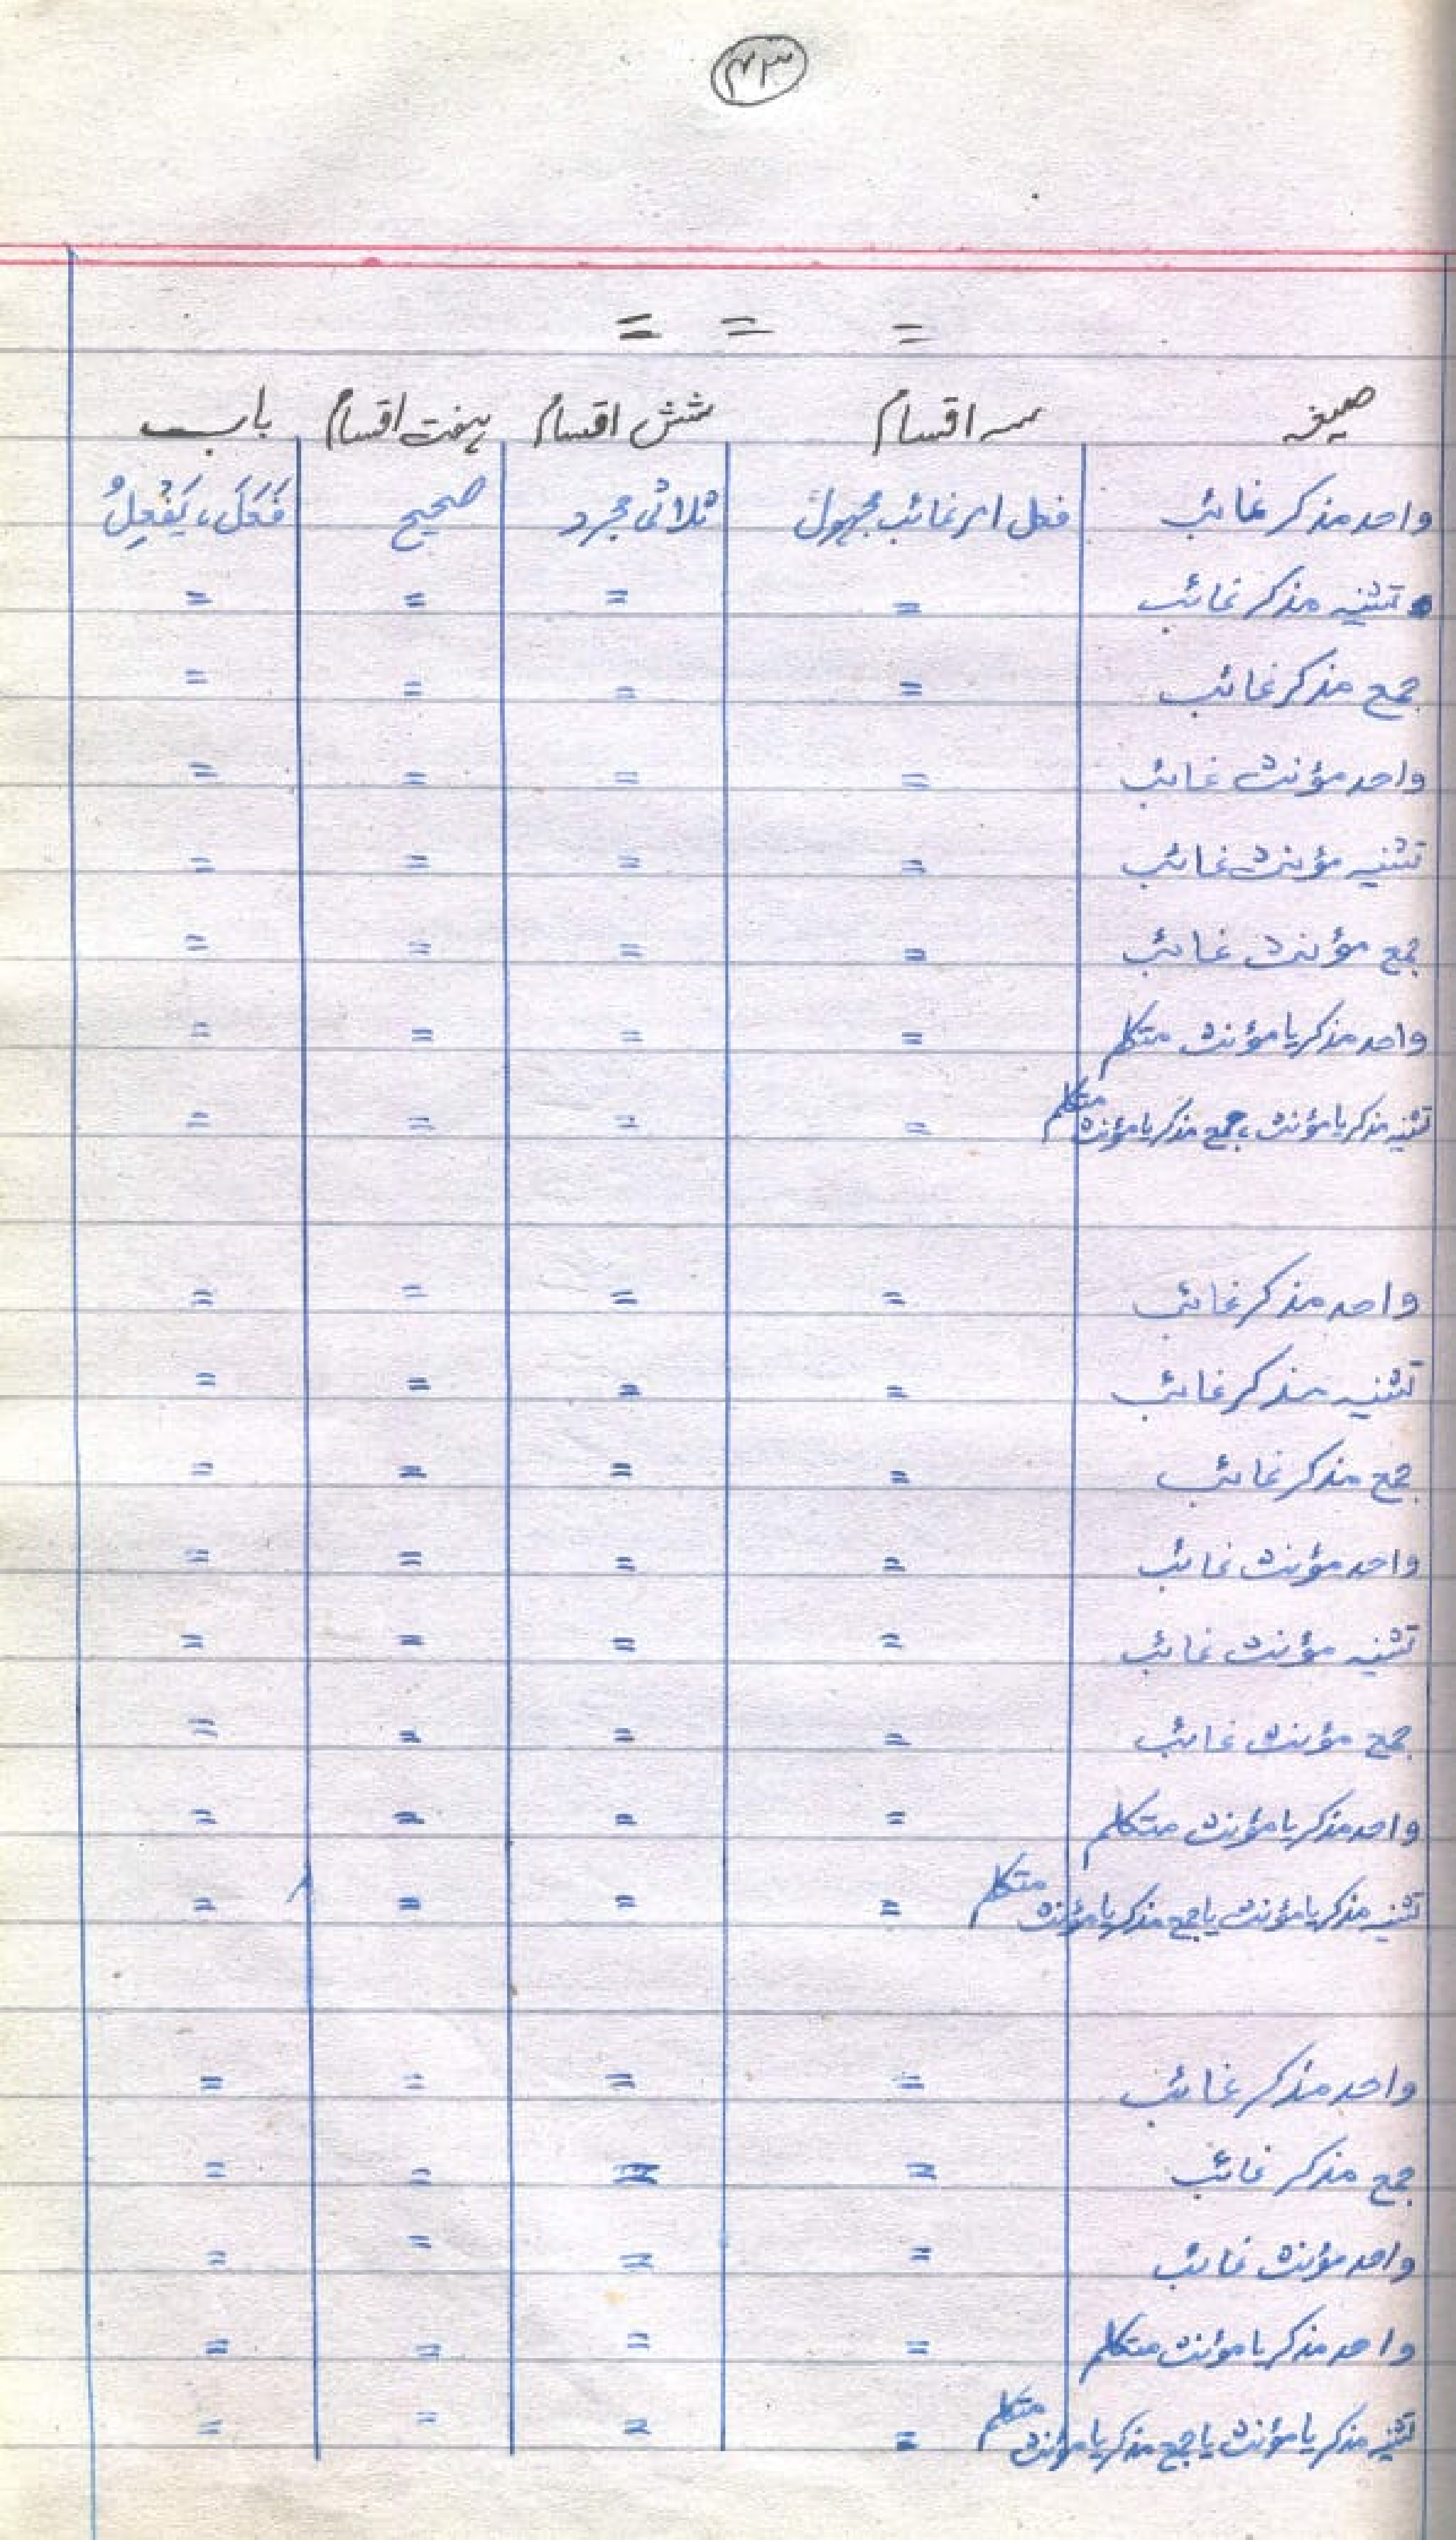 ۴۳
= = =
صیغہ سہ اقسام شش اقسام ہفت اقسام باب
واحد مذکر غائب فعل امر غائب مجہول ثلاثی مجرد صحیح فَعَلَ، یَفْعِلُ
تثنیہ مذکر غائب = = = =
جمع مذکر غائب = = = =
واحد مؤنث غائب = = = =
تثنیہ مؤنث غائب = = = =
جمع مؤنث غائب = = = =
واحد مذکر یا مؤنث متکلم = = = =
تثنیہ مذکر یا مؤنث، جمع مذکر یا مؤنث متکلم = = = =
واحد مذکر غائب = = = =
تثنیہ مذکر غائب = = = =
جمع مذکر غائب = = = =
واحد مؤنث غائب = = = =
تثنیہ مؤنث غائب = = = =
جمع مؤنث غائب = = = =
واحد مذکر یا مؤنث متکلم = = = =
تثنیہ مذکر یا مؤنث یا جمع مذکر یا مؤنث متکلم = = = =
واحد مذکر غائب = = = =
جمع مذکر غائب = = = =
واحد مؤنث غائب = = = =
واحد مذکر یا مؤنث متکلم = = = =
تثنیہ مذکر یا مؤنث یا جمع مذکر یا مؤنث متکلم = = = =